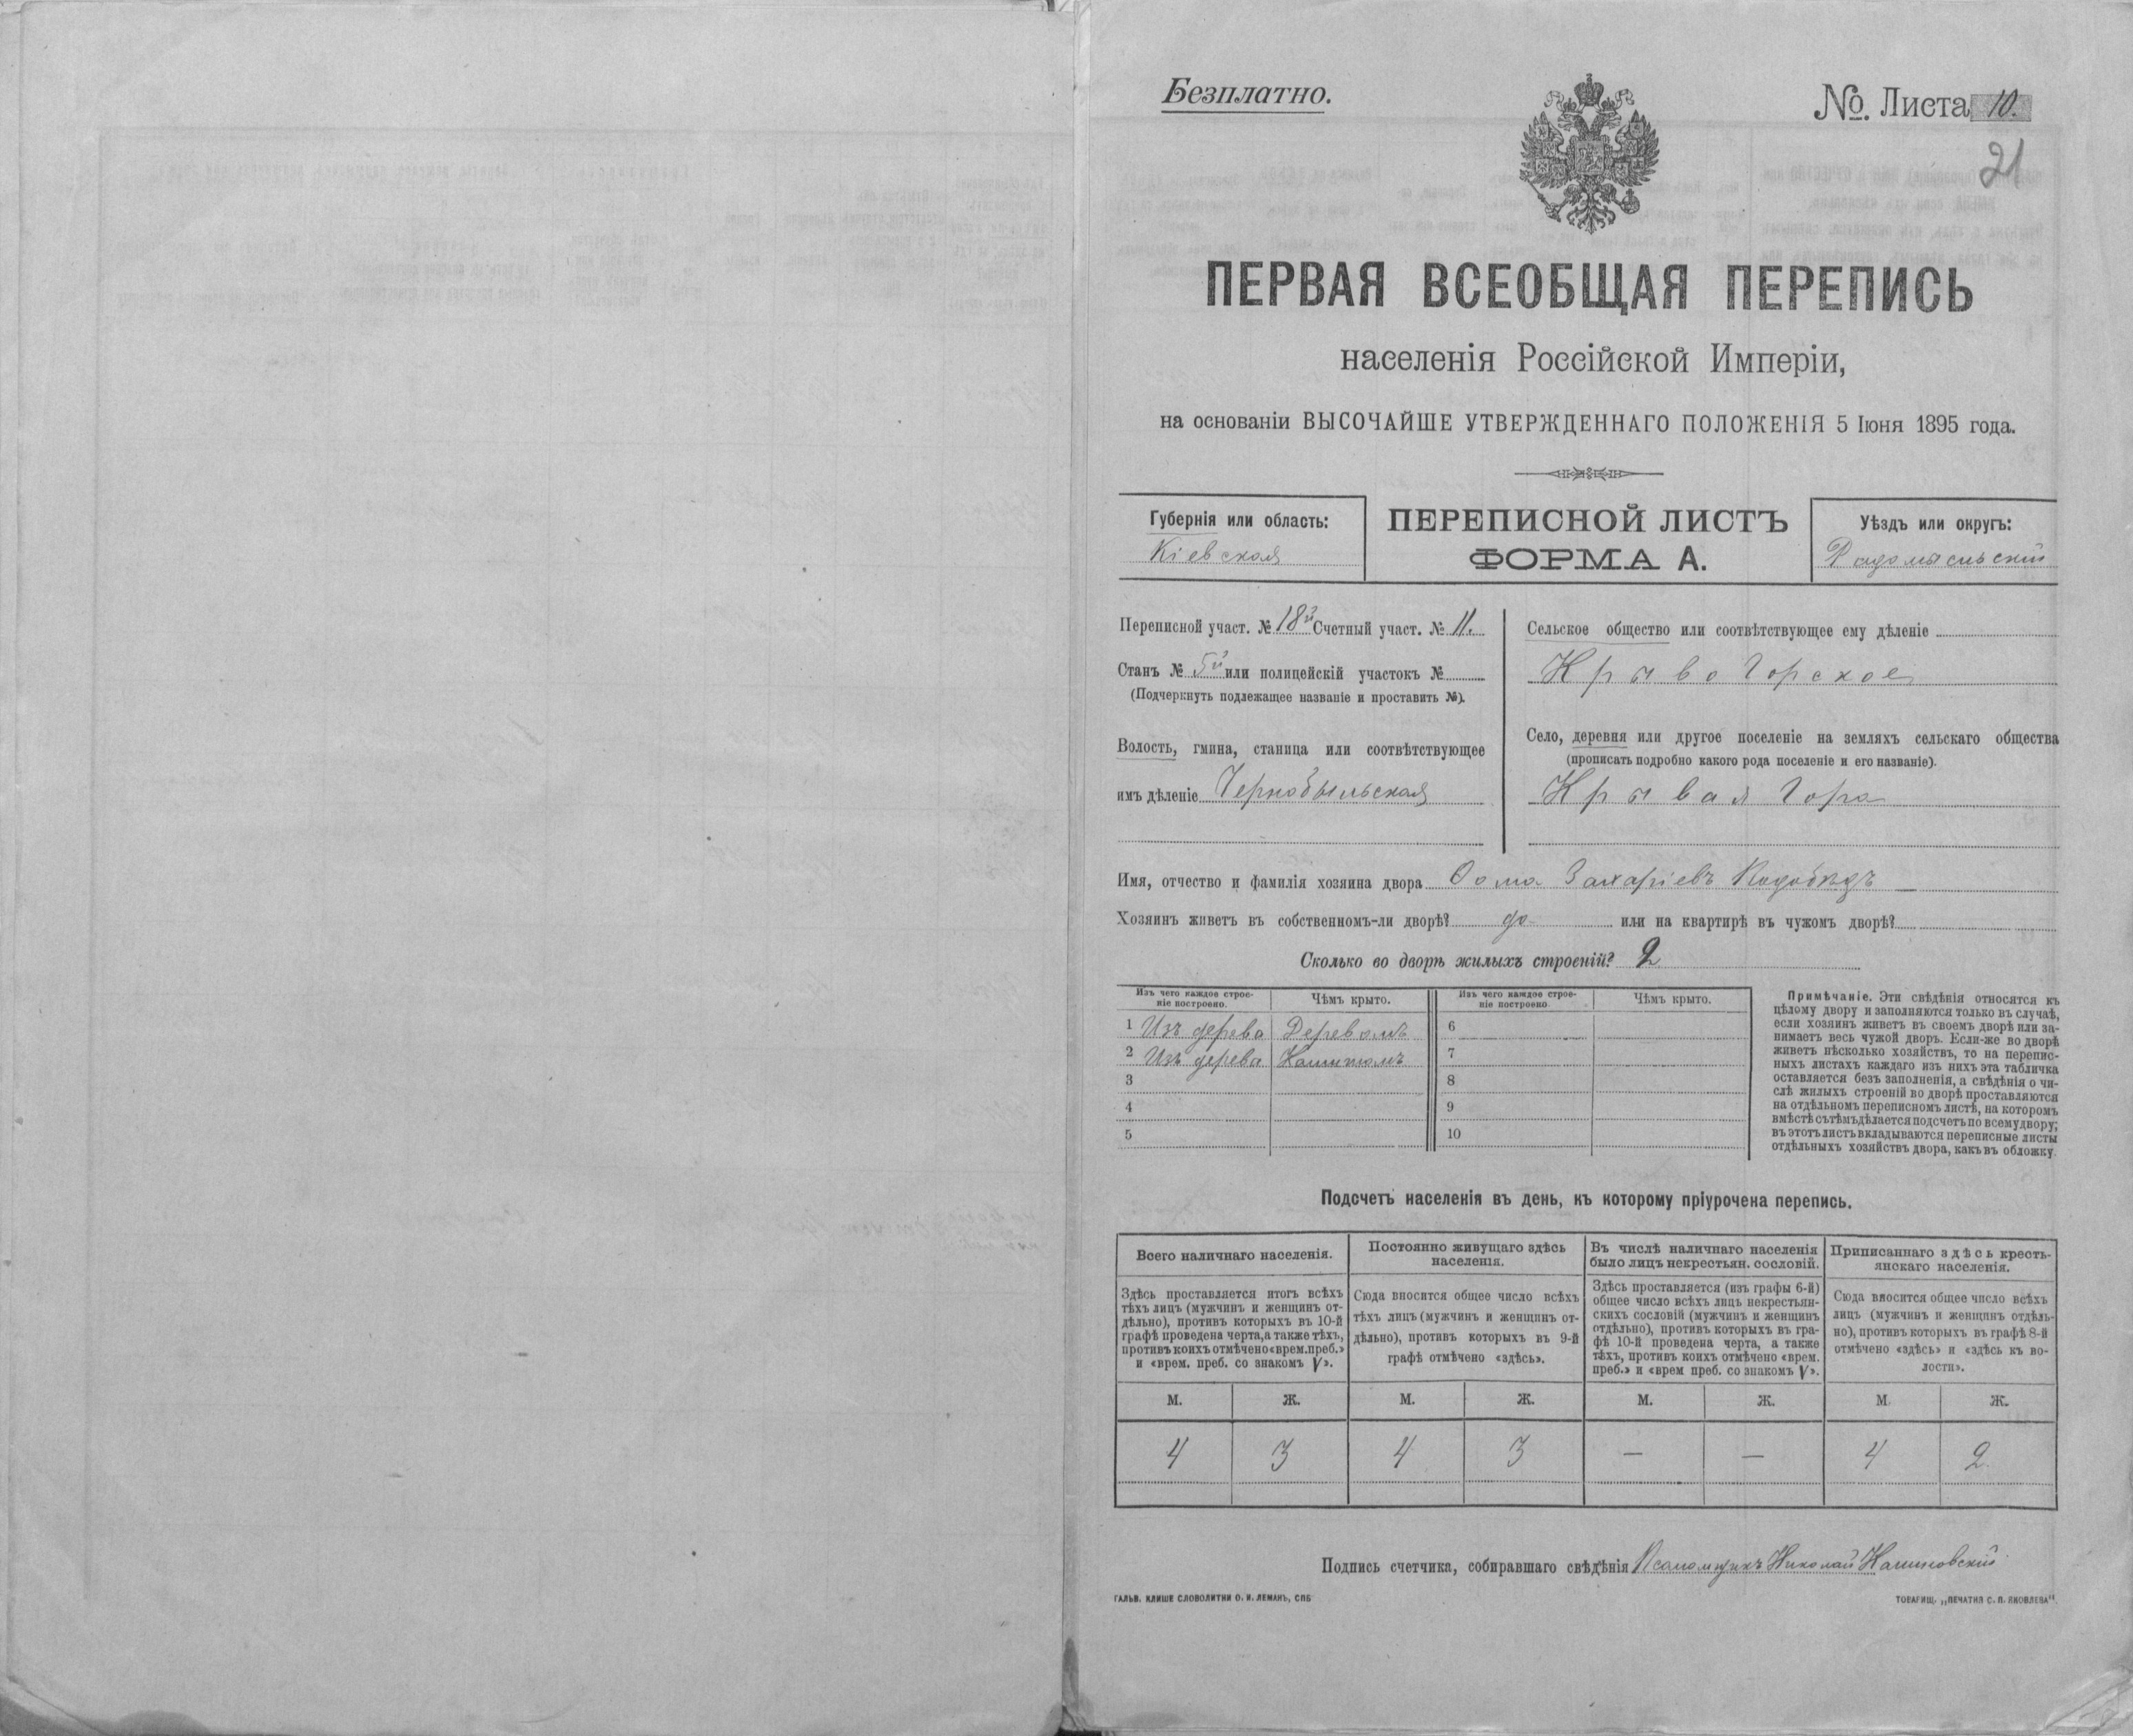 Безплатно.
№ Листа 10.
21
ПЕРВАЯ ВСЕОБЩАЯ ПЕРЕПИСЬ
населенія Россійской Имперіи,
на основаніи ВЫСОЧАЙШЕ УТВЕРЖДЕННАГО ПОЛОЖЕНІЯ 5 Іюня 1895 года.
Губернія или область:
Кіевская
ПЕРЕПИСНОЙ ЛИСТЪ
ФОРМА А.
Уѣздъ или округъ:
Радомысльскій
Переписной участ. № 18й Счетный участ. № 11.
Станъ № 5й или полицейскій участокъ №
(Подчеркнуть подлежащее названіе и проставить №).
Волость, гмина, станица или соотвѣтствующее
имъ дѣленіе Чернобыльская
Сельское общество или соотвѣтствующее ему дѣленіе
Крыво Горское
Село, деревня или другое поселеніе на земляхъ сельскаго общества
(прописать подробно какого рода поселеніе и его названіе).
Крывая Гора
Имя, отчество и фамилія хозяина двора Ѳома Захаріевъ Кодобѣдъ
Хозяинъ живетъ въ собственномъ-ли дворѣ? да или на квартирѣ въ чужомъ дворѣ?
Сколько во дворѣ жилыхъ строеній? 2
Изъ чего каждое строе-
ніе построено.
Чѣмъ крыто.
Изъ чего каждое строе-
ніе построено.
Чѣмъ крыто.
1 Изъ дерева Деревомъ 6
2 Изъ дерева Камышомъ 7
3 8
4 9
5 10
Примѣчаніе. Эти свѣдѣнія относятся къ
цѣлому двору и заполняются только въ случаѣ,
если хозяинъ живетъ въ своемъ дворѣ или за-
нимаетъ весь чужой дворъ. Если-же во дворѣ
живетъ нѣсколько хозяйствъ, то на перепис-
ныхъ листахъ каждаго изъ нихъ эта табличка
оставляется безъ заполненія, а свѣдѣнія о чи-
слѣ жилыхъ строеній во дворѣ проставляются
на отдѣльномъ переписномъ листѣ, на которомъ
вмѣстѣ съ тѣмъ дѣлается подсчетъ по всему двору;
въ этотъ листъ вкладываются переписные листы
отдѣльныхъ хозяйствъ двора, какъ въ обложку.
Подсчетъ населенія въ день, къ которому пріурочена перепись.
Всего наличнаго населенія.
Постоянно живущаго здѣсь
населенія.
Въ числѣ наличнаго населенія
было лицъ некрестьян. сословій.
Приписаннаго здѣсь кресть-
янскаго населенія.
Здѣсь проставляется итогъ всѣхъ
тѣхъ лицъ (мужчинъ и женщинъ от-
дѣльно), противъ которыхъ въ 10-й
графѣ проведена черта, а также тѣхъ,
противъ коихъ отмѣчено «врем. преб.»
и «врем. преб. со знакомъ V».
Сюда вносится общее число всѣхъ
тѣхъ лицъ (мужчинъ и женщинъ от-
дѣльно), противъ которыхъ въ 9-й
графѣ отмѣчено «здѣсь».
Здѣсь проставляется (изъ графы 6-й)
общее число всѣхъ лицъ некрестьян-
скихъ сословій (мужчинъ и женщинъ
отдѣльно), противъ которыхъ въ гра-
фѣ 10-й проведена черта, а также
тѣхъ, противъ коихъ отмѣчено «врем.
преб.» и «врем преб. со знакомъ V».
Сюда вносится общее число всѣхъ
лицъ (мужчинъ и женщинъ отдѣль-
но), противъ которыхъ въ графѣ 8-й
отмѣчено «здѣсь» и «здѣсь къ во-
лости».
М. Ж. М. Ж. М. Ж. М. Ж.
4 3 4 3 — — 4 2
Подпись счетчика, собиравшаго свѣдѣнія Псаломщикъ Николай Калиновскій
ГАЛЬВ. КЛИШЕ СЛОВОЛИТНИ О. И. ЛЕМАНЪ, СПБ
ТОВАРИЩ. „ПЕЧАТНЯ С. П. ЯКОВЛЕВА".